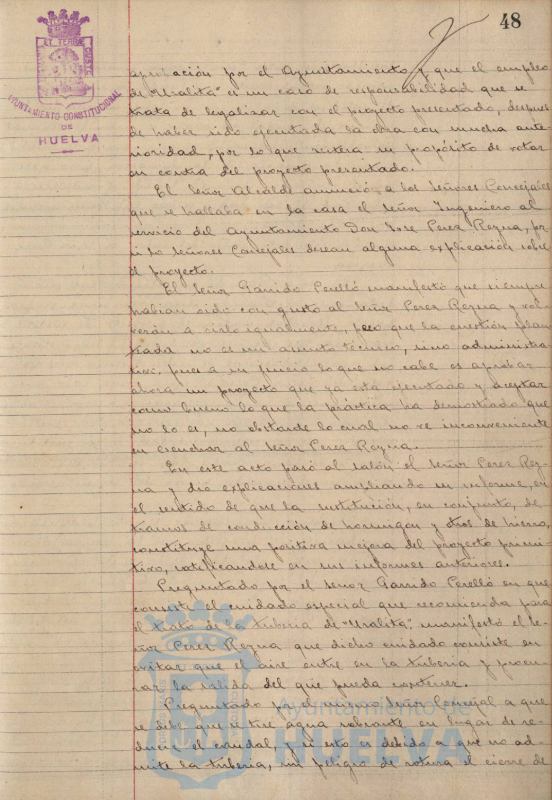 48
AYUNTAMIENTO CONSTITUCIONAL
DE
HUELVA
aprobación por el Ayuntamiento y que el empleo
de "Uralita" es un caso de responsabilidad que se
trata de legalizar con el proyecto presentado, despues
de haber sido ejecutada la obra con mucha ante
rioridad, por lo que reitera su propósito de votar
en contra del proyecto presentado.
El Señor Alcalde anunció a los Señores Concejales
que se hallaba en la casa el Señor Ingeniero al
servicio del Ayuntamiento Don José Perez Reyna, por
si los Señores Concejales desean alguna explicación sobre
el proyecto.
El Señor Garrido Perelló manifestó que siempre
habian oido con gusto al Señor Perez Reyna y vol
verán a oirlo igualmente, pero que la cuestión plan
teada no es un asunto técnico, sino administra
tivo, pues a su juicio lo que no cabe es aprobar
ahora un proyecto que ya está ejecutado y aceptar
como bueno lo que la práctica ha demostrado que
no lo es, no obstante lo cual no ve inconveniente
en escuchar al Señor Perez Reyna.
En este acto pasó al salón el Señor Perez Rey
na y dió explicaciones ampliando su informe, en
el sentido de que la sustitución, en conjunto, de
tramos de conducción de hormigon y otros de hierro,
constituye una positiva mejora del proyecto primi
tivo, ratificandose en sus informes anteriores.
Preguntado por el Señor Garrido Perelló en que
consiste el cuidado especial que recomienda para
el trato de la tuberia de "Uralita" manifestó el Se
ñor Perez Reyna que dicho cuidado consiste en
evitar que el aire entre en la tuberia y procu
rar la salida del que pueda contener.
Preguntado por el mismo Señor Concejal a que
se debe que se tire agua sobrante en lugar de re
ducir el caudal, y si esto es debido a que no ad
mite la tuberia, sin peligro de rotura el cierre de
Ayuntamiento de
HUELVA